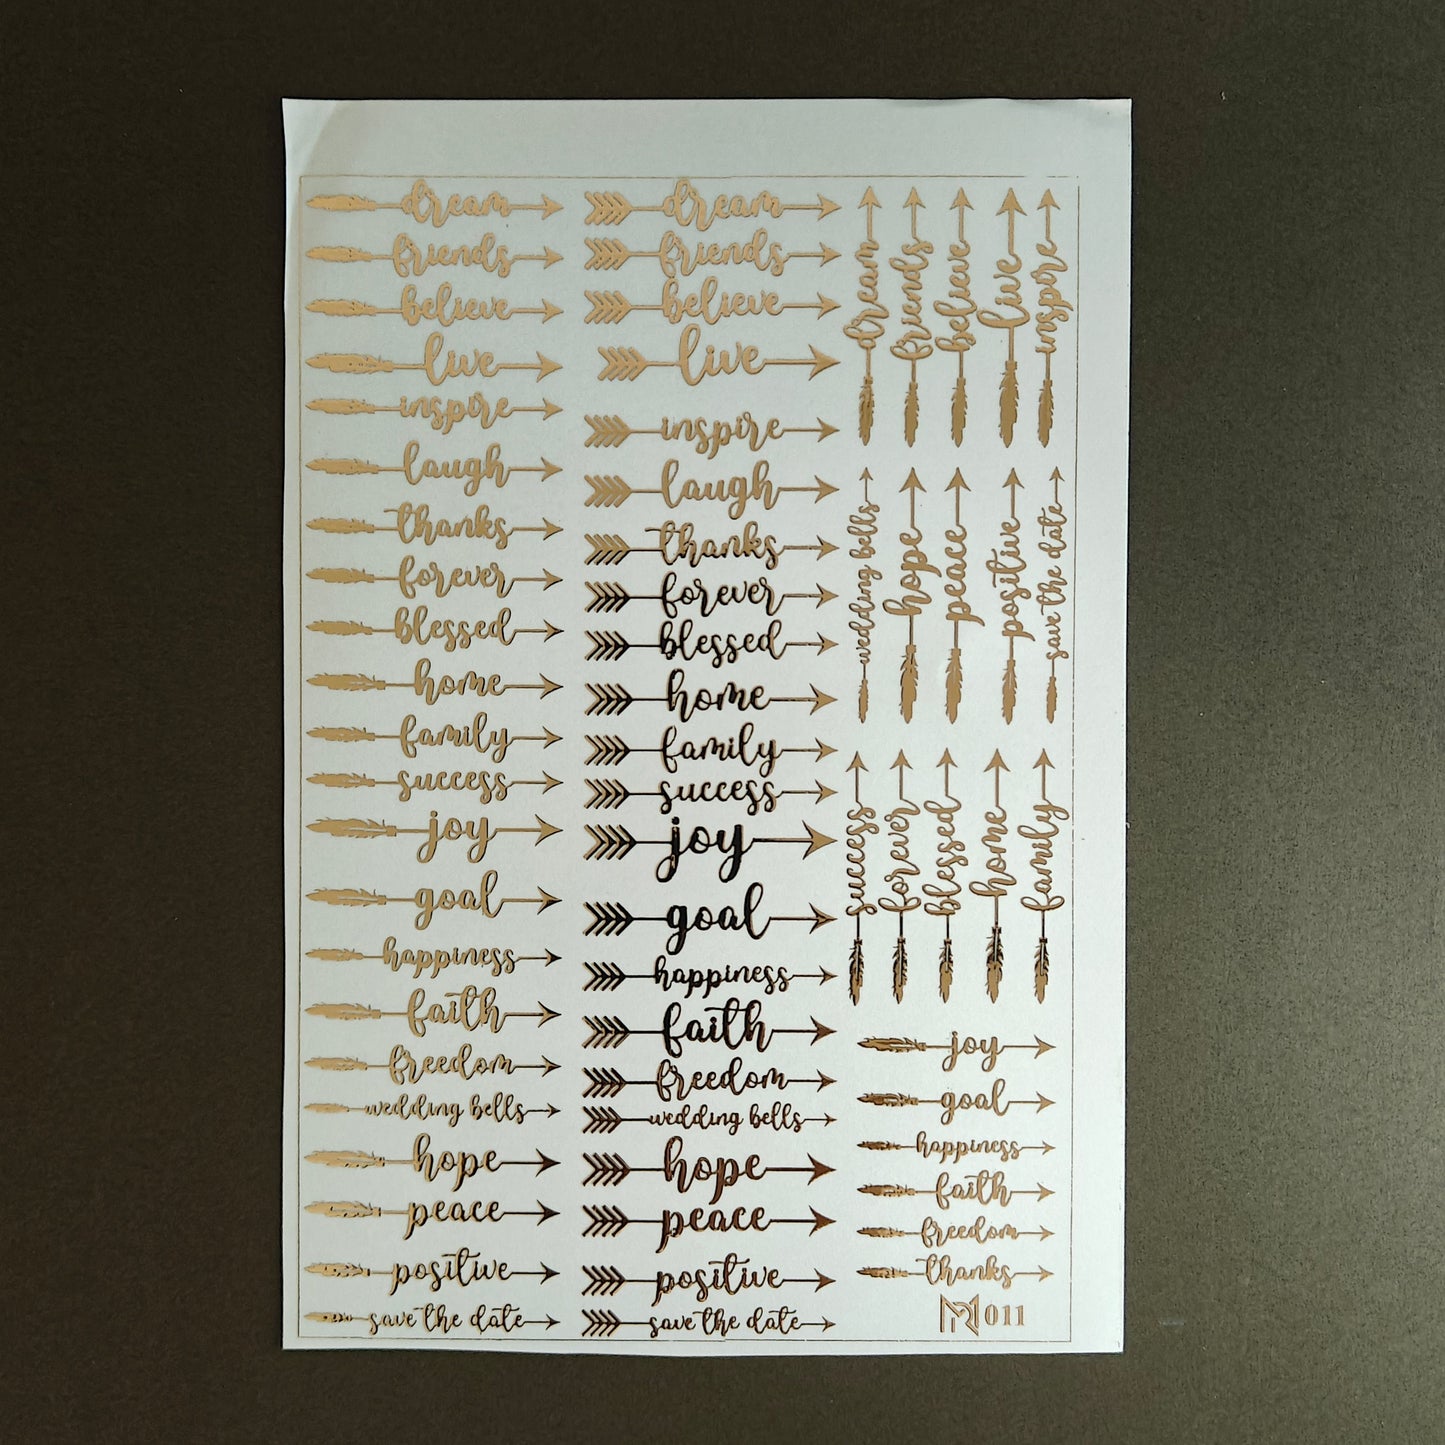 dream
friends
believe
live
inspire
laugh
thanks
forever
blessed
home
family
success
joy
goal
happiness
faith
freedom
wedding bells
hope
peace
positive
save the date
dream
friends
believe
live
inspire
laugh
thanks
forever
blessed
home
family
success
joy
goal
happiness
faith
freedom
wedding bells
hope
peace
positive
save the date
dream
friends
believe
live
inspire
wedding bells
hope
peace
positive
save the date
success
forever
blessed
home
family
joy
goal
happiness
faith
freedom
thanks
011